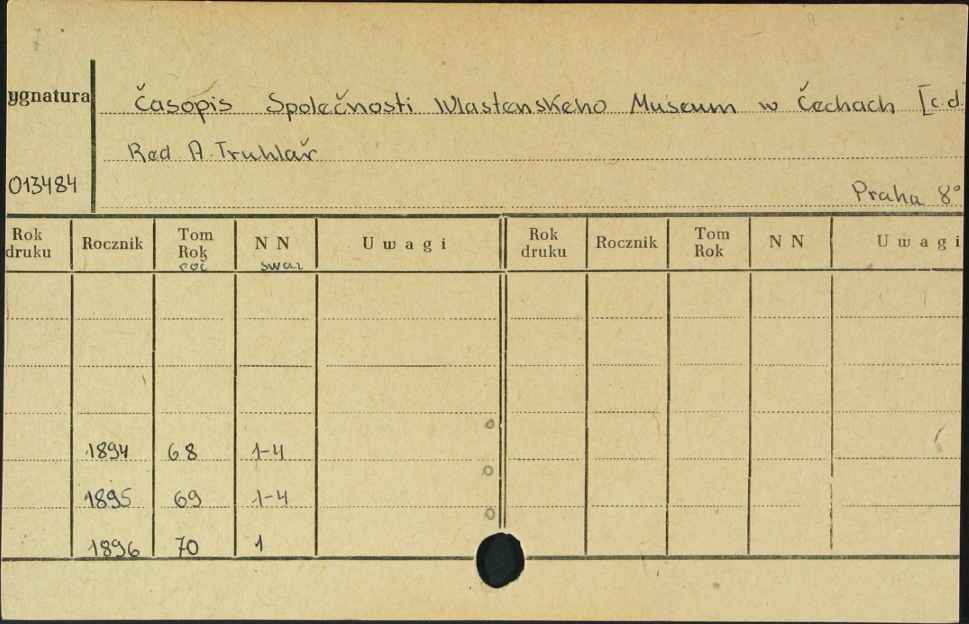 ygnatura
Časopis Společnosti Wlastenskeho Museum w Čechach [c.d.
Red. A. Truhlař
013484
Praha 8°
Rok druku Rocznik Tom Rok N N Uwagi Rok druku Rocznik Tom Rok N N Uwagi
roč swaz
1894 68 1-4
1895 69 1-4
1896 70 1